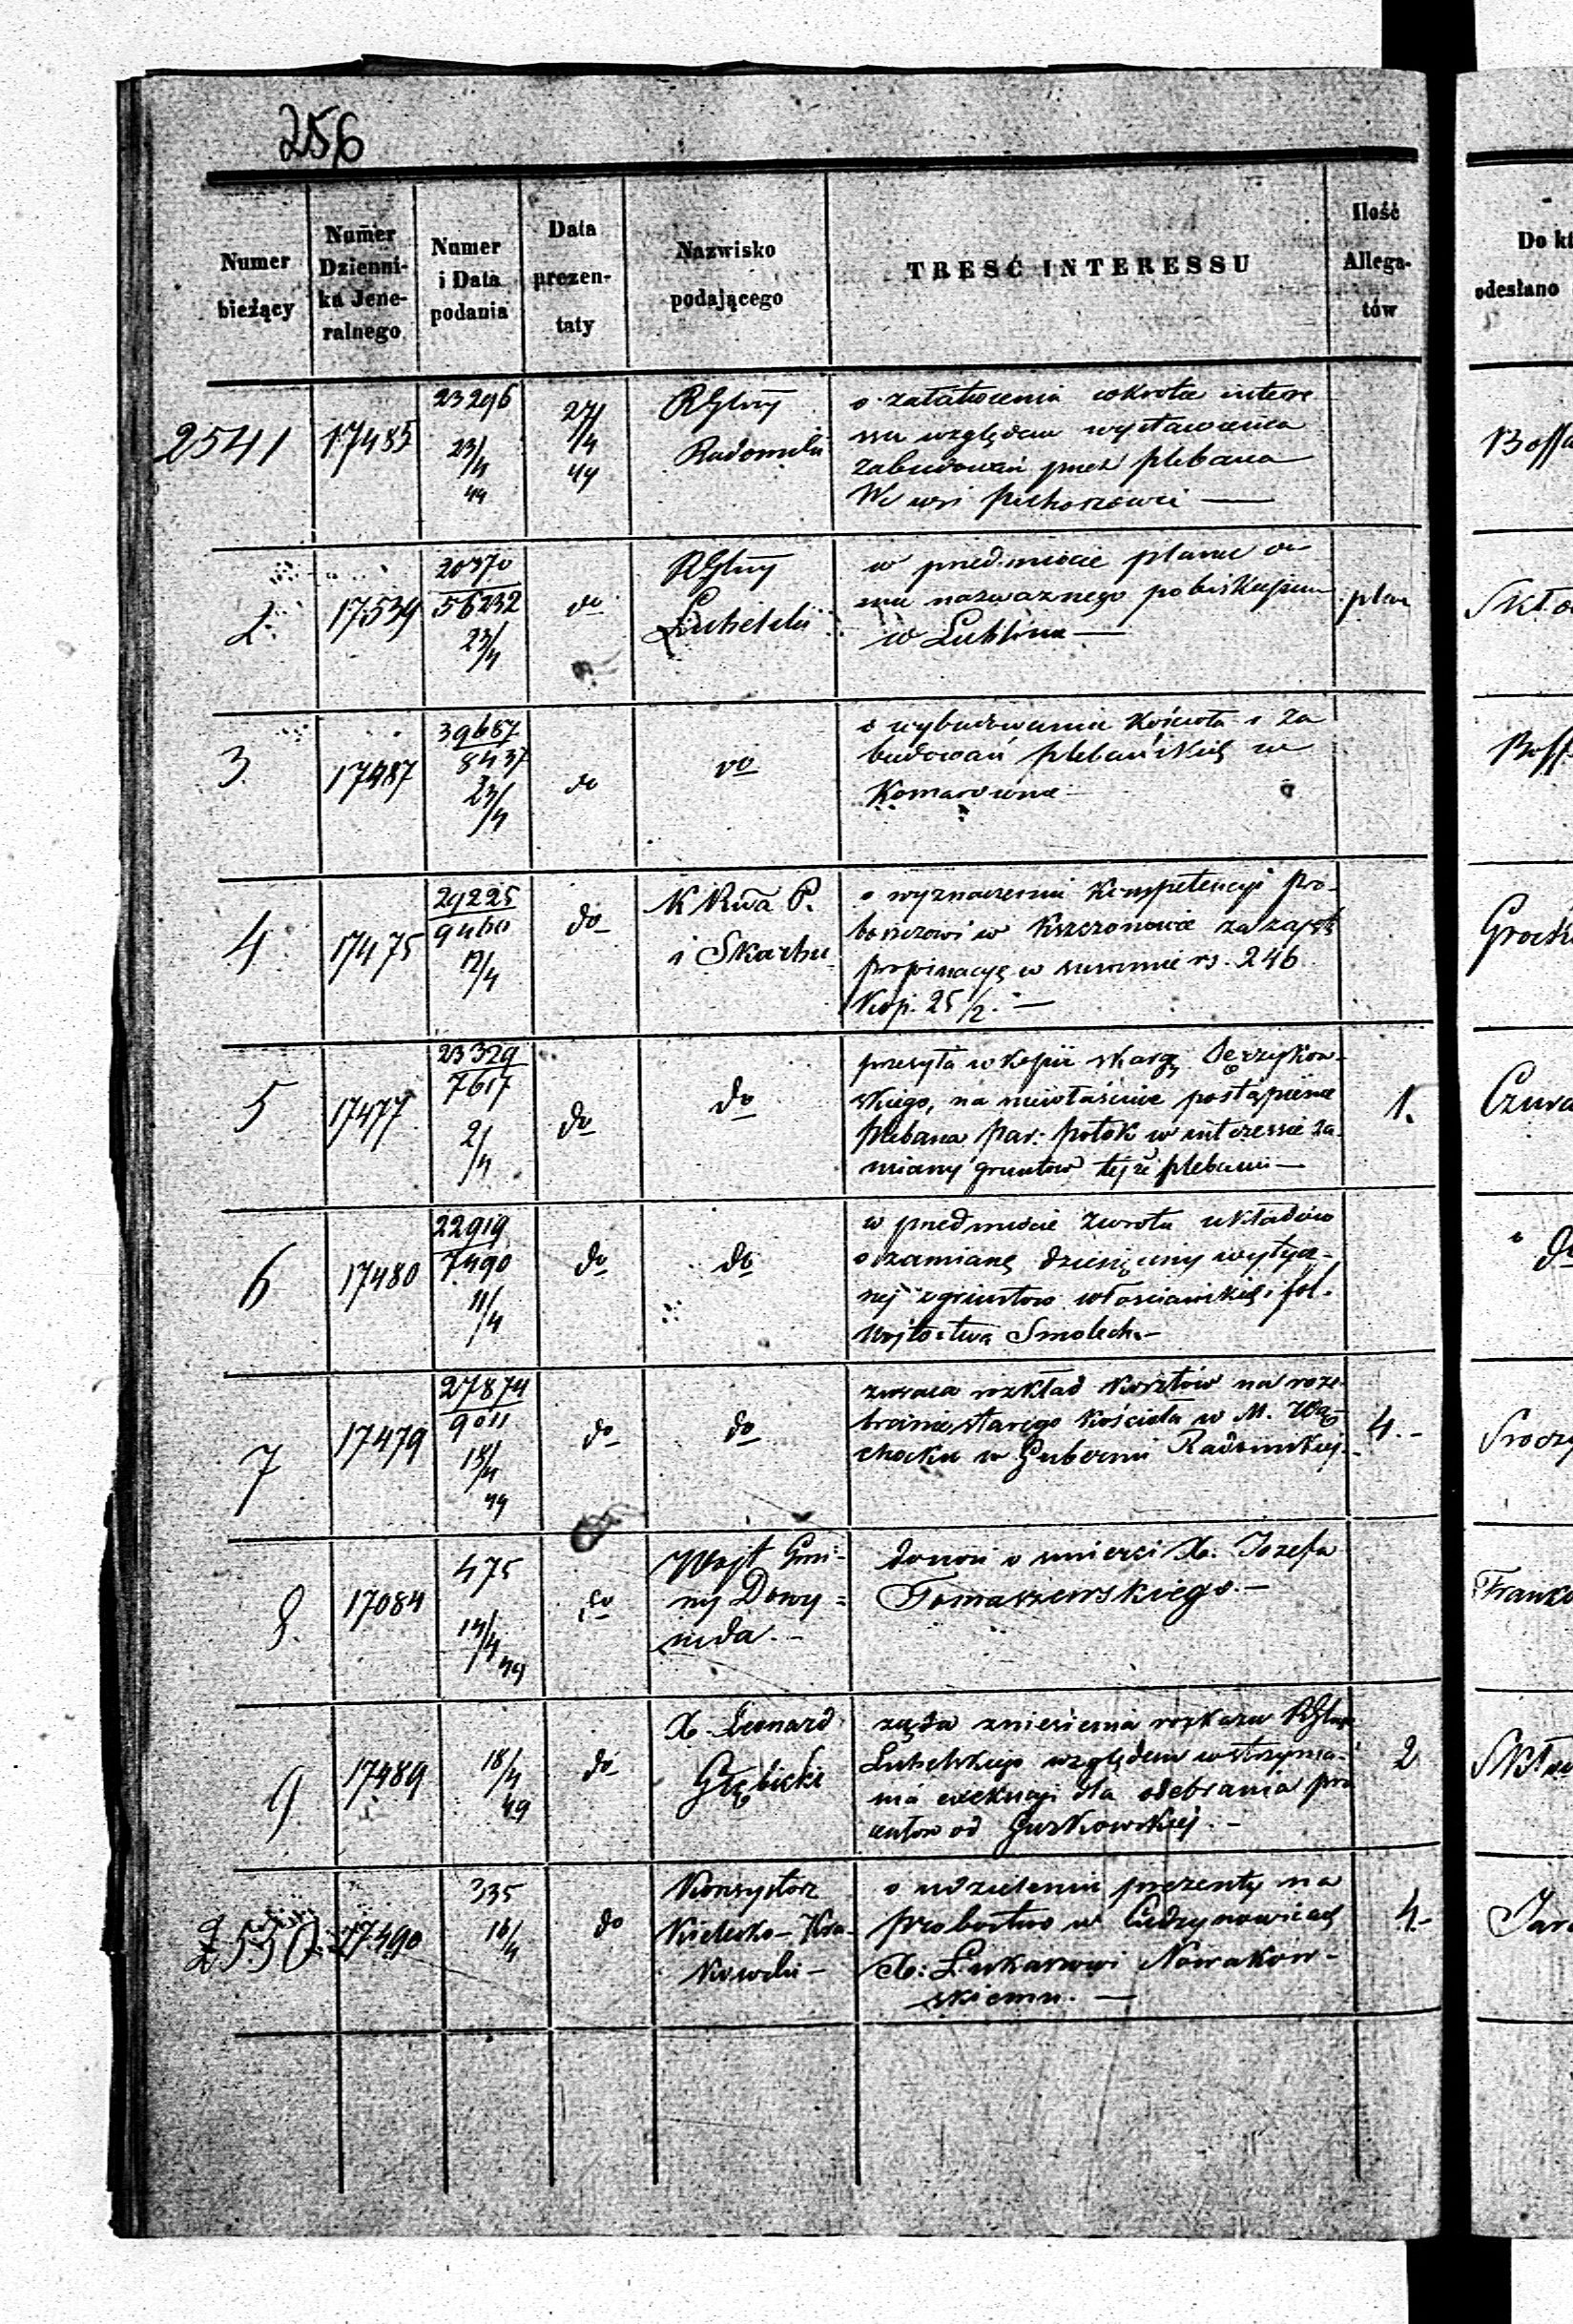 256
Numer bieżący
Numer Dzienni-
ka Jene-
ralnego
Numer
i Data
podania
Data
prezen-
taty
Nazwisko
podającego
TRESĆ INTERESSU
Ilość
Allega-
tów
Do kt
odesłano
2541 17485 23296 23/4 44 27/4 44
RGlny
Radomski
o załatwienie wkrótce interes
su względem wystawienia
zabudowań przez plebana
We wsi
2. 17539 20370 56232 23/4 do
RGlny
Lubelski
w przedmiocie planu do-
mu nazwanego pobiskupim
w Lublinie —
plan
3. 17487 39687 8437 23/4 do do
o wybudowanie Kościoła i za
budowań plebańskich w
Komarowie —
4 17475 29225 9460 12/4 do
K Rwa P.
i Skarbu
o wyznaczenie kompetencyi pro-
boszczowi w Kszczonowie za zajętą
propinacyę w summie rs. 246
Kop. 25 1/2. —
5 17477 23329 7617 2/4 do do
przesyła w kopii skargę
skiego, na niewłaściwe postąpienie
plebana par. potok w interessie za-
miany gruntów tejże plebanii —
1.
6 17480 22919 7490 11/4 do do
w przedmiocie zwrotu układów
o zamianę dziesięciny wytycz-
nej z gruntów włościańskich i fol.
Wójtostwa Smolech. —
7 17479 27874 9011 18/4 44 do do
zwraca rozkład kosztów na roze-
branie starego kościoła w M. Wą-
chocku w Gubernii Radomskiej. —
4. —
8. 17084 475 14/4 44 do
Wójt Gmi-
ny Dowy-
nida. —
donosi o śmierci X. Jozefa
Tomaszewskiego. —
9 17489 18/4 49 do
X. Leonard
Głębicki
żąda zniesienia rozkazu RGlu
Lubelskiego względem wstrzyma-
nia exekucyi dla odebrania pro
centów od Gurkowskiej. —
2
2550 17490 335 16/4 do
Konsystorz
Kielecko-Kra-
kowski —
o udzielenie prezenty na
probostwo w Cudzynowicach
X: Łukaszowi Nowakow-
skiemu. —
4 —